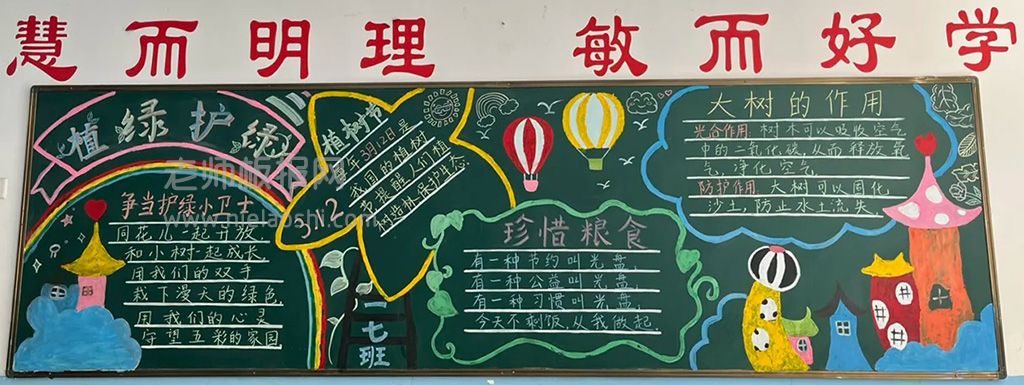 慧而明理 敏而好学
植绿护绿
争当护绿小卫士
同花儿一起开放
和小树一起成长
用我们的双手
栽下漫天的绿色
用我们的心灵
守望五彩的家园
植树节
3.12
每年3月12日是
我国的植树
节提醒人们植
树造林保护生态
二七班
珍惜粮食
有一种节约叫光盘,
有一种公益叫光盘,
有一种习惯叫光盘,
今天不剩饭,从我做起
大树的作用
光合作用 树木可以吸收空气
中的二氧化碳,从而释放氧
气,净化空气
防护作用 大树可以固化
沙土,防止水土流失
老师板报网